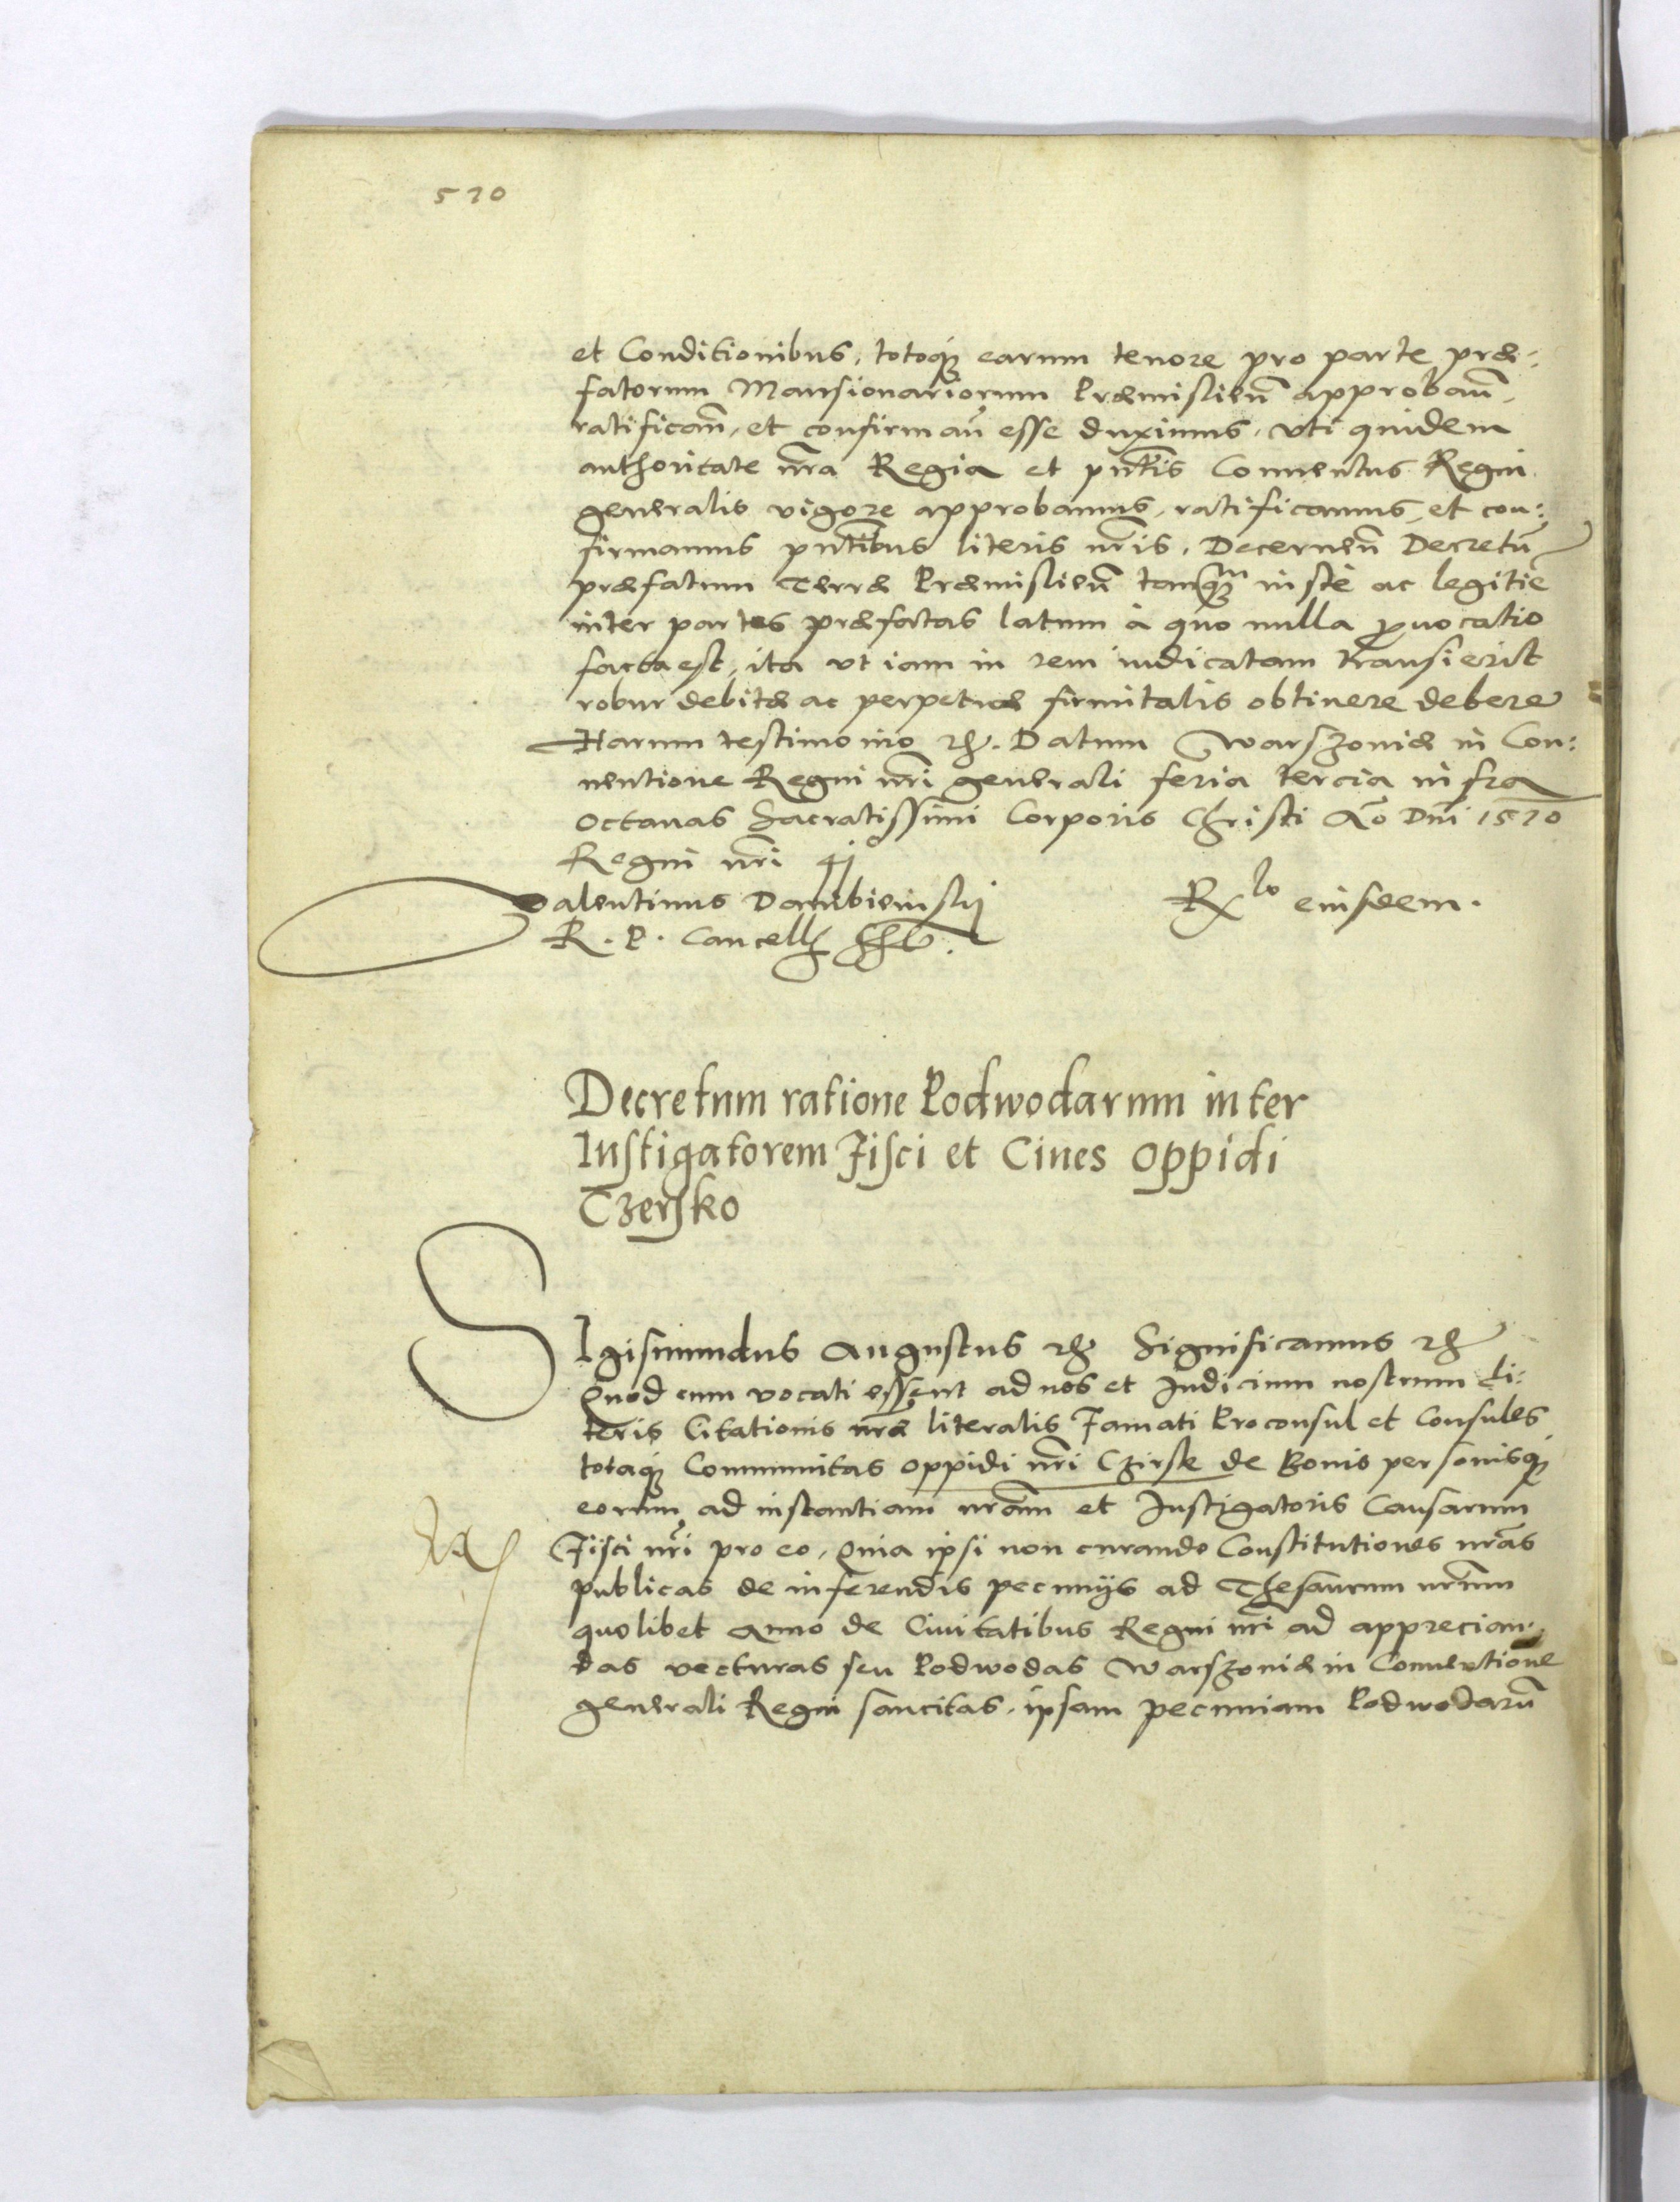 570
et Conditionibus, totoq̃ earum tenore pro parte præ-
fatorum Mansionariorum Præmislieñ approbañ,
ratificañ, et confirmañ esse duximus, vti quidem
authoritate nr̃a Regia et pñtis Conuentus Regni
generalis vigore approbamus, ratificamus, et con:
firmamus pñtibus literis nr̃is, Decerneñ Decretũ
præfatum Terræ Præmislieñ tanq̃m iuste ac legitie
inter partes præfatas latum à quo nulla ꝓuocatio
facta est, ita vt iam in rem iudicatam transierit
robur debitæ ac perpetuæ firmitatis obtinere debere
Harum testimonio ꝛc. Datum Warszouiæ in Con:
uentione Regni nr̃i generali feria tercia infra
octauas Sacratissimi Corporis Christi Aõ Dñi 1570
Regni nr̃i 41°
Valentinus Dambienskj
R. P. Cancell sst.
Rlo eiusdem.
Decretum ratione Podwodarum inter
Instigatorem Fisci et Ciues oppidi
Czersko
SIgismundus Augustus ꝛc Significamus ꝛc
Quod cum vocati essent ad nos et Iudicium nostrum li:
teris Citationis nr̃æ literalis Famati Proconsul et Consules
totaq̃ Communitas oppidi nr̃i Czirsk de Bonis personisq̃
eorum, ad instantiam nr̃am et Instigatoris Causarum
Fisci nr̃i pro eo, Quia ipsi non curando Constitutiones nr̃as
publicas de inferendis pecunijs ad Thesaurum nr̃um
quolibet Anno de Ciuitatibus Regni nr̃i ad apprecian-
das vecturas seu Podwodas Warszouiæ in Conuentione
generali Regni sancitas, ipsam pecuniam Podwodarũ